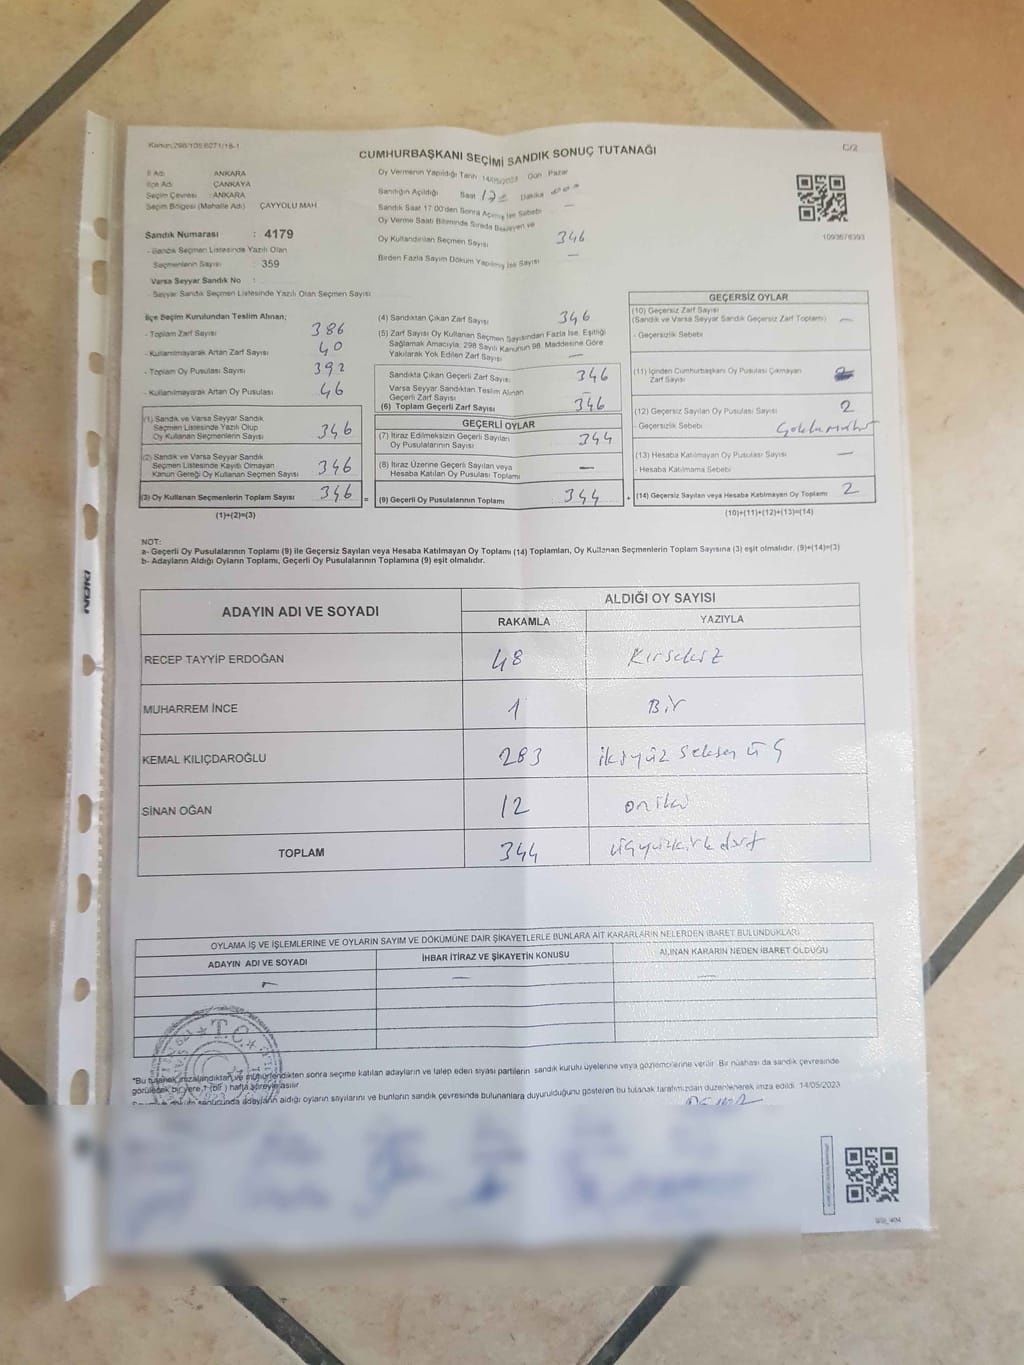 Kanun:298/105 6271/18-1
C/2
CUMHURBAŞKANI SEÇİMİ SANDIK SONUÇ TUTANAĞI
İl Adı ANKARA
İlçe Adı ÇANKAYA
Seçim Çevresi : ANKARA
Seçim Bölgesi (Mahalle Adı) ÇAYYOLU MAH.
Sandık Numarası : 4179
- Sandık Seçmen Listesinde Yazılı Olan
Seçmenlerin Sayısı : 359
Varsa Seyyar Sandık No :
- Seyyar Sandık Seçmen Listesinde Yazılı Olan Seçmen Sayısı
Oy Vermenin Yapıldığı Tarih 14/05/2023 Gün Pazar
Sandığın Açıldığı Saat 17 Dakika
Sandık Saat 17.00'den Sonra Açılmış İse Sebebi —
Oy Verme Saati Bitiminde Sırada Bekleyen ve
Oy Kullandırılan Seçmen Sayısı 346
Birden Fazla Sayım Döküm Yapılmış İse Sayısı —
1093678393
İlçe Seçim Kurulundan Teslim Alınan;
- Toplam Zarf Sayısı 386
- Kullanılmayarak Artan Zarf Sayısı 40
- Toplam Oy Pusulası Sayısı 392
- Kullanılmayarak Artan Oy Pusulası 46
(1) Sandık ve Varsa Seyyar Sandık
Seçmen Listesinde Yazılı Olup
Oy Kullanan Seçmenlerin Sayısı 346
(2) Sandık ve Varsa Seyyar Sandık
Seçmen Listesinde Kayıtlı Olmayan
Kanun Gereği Oy Kullanan Seçmen Sayısı 346
(3) Oy Kullanan Seçmenlerin Toplam Sayısı 346 =
(1)+(2)=(3)
(4) Sandıktan Çıkan Zarf Sayısı 346
(5) Zarf Sayısı Oy Kullanan Seçmen Sayısından Fazla İse, Eşitliği
Sağlamak Amacıyla; 298 Sayılı Kanunun 98. Maddesine Göre
Yakılarak Yok Edilen Zarf Sayısı —
Sandıkta Çıkan Geçerli Zarf Sayısı 346
Varsa Seyyar Sandıktan Teslim Alınan
Geçerli Zarf Sayısı —
(6) Toplam Geçerli Zarf Sayısı 346
GEÇERLİ OYLAR
(7) İtiraz Edilmeksizin Geçerli Sayılan
Oy Pusulalarının Sayısı 344
(8) İtiraz Üzerine Geçerli Sayılan veya
Hesaba Katılan Oy Pusulası Toplamı —
(9) Geçerli Oy Pusulalarının Toplamı 344 +
GEÇERSİZ OYLAR
(10) Geçersiz Zarf Sayısı
(Sandık ve Varsa Seyyar Sandık Geçersiz Zarf Toplamı) —
- Geçersizlik Sebebi
(11) İçinden Cumhurbaşkanı Oy Pusulası Çıkmayan
Zarf Sayısı
(12) Geçersiz Sayılan Oy Pusulası Sayısı 2
- Geçersizlik Sebebi
(13) Hesaba Katılmayan Oy Pusulası Sayısı —
- Hesaba Katılmama Sebebi
(14) Geçersiz Sayılan veya Hesaba Katılmayan Oy Toplamı 2
(10)+(11)+(12)+(13)=(14)
NOT:
a- Geçerli Oy Pusulalarının Toplamı (9) ile Geçersiz Sayılan veya Hesaba Katılmayan Oy Toplamı (14) Toplamları, Oy Kullanan Seçmenlerin Toplam Sayısına (3) eşit olmalıdır. (9)+(14)=(3)
b- Adayların Aldığı Oyların Toplamı, Geçerli Oy Pusulalarının Toplamına (9) eşit olmalıdır.
ADAYIN ADI VE SOYADI
ALDIĞI OY SAYISI
RAKAMLA YAZIYLA
RECEP TAYYİP ERDOĞAN 48 Kırsekiz
MUHARREM İNCE 1 Bir
KEMAL KILIÇDAROĞLU 283 ikiyüz seksen üç
SİNAN OĞAN 12 oniki
TOPLAM 344 üçyüzkırkdört
OYLAMA İŞ VE İŞLEMLERİNE VE OYLARIN SAYIM VE DÖKÜMÜNE DAİR ŞİKAYETLERLE BUNLARA AİT KARARLARIN NELERDEN İBARET BULUNDUKLARI
ADAYIN ADI VE SOYADI İHBAR İTİRAZ VE ŞİKAYETİN KONUSU ALINAN KARARIN NEDEN İBARET OLDUĞU
— — —
T.C.
*Bu tutanak imzalandıktan ve mühürlendikten sonra seçime katılan adayların ve talep eden siyasi partilerin sandık kurulu üyelerine veya gözlemcilerine verilir. Bir nüshası da sandık çevresinde
görülecek bir yere 1 (bir) hafta süreyle asılır
adayların aldığı oyların sayılarını ve bunların sandık çevresinde bulunanlara duyurulduğunu gösteren bu tutanak tarafımızdan düzenlenerek imza edildi. 14/05/2023